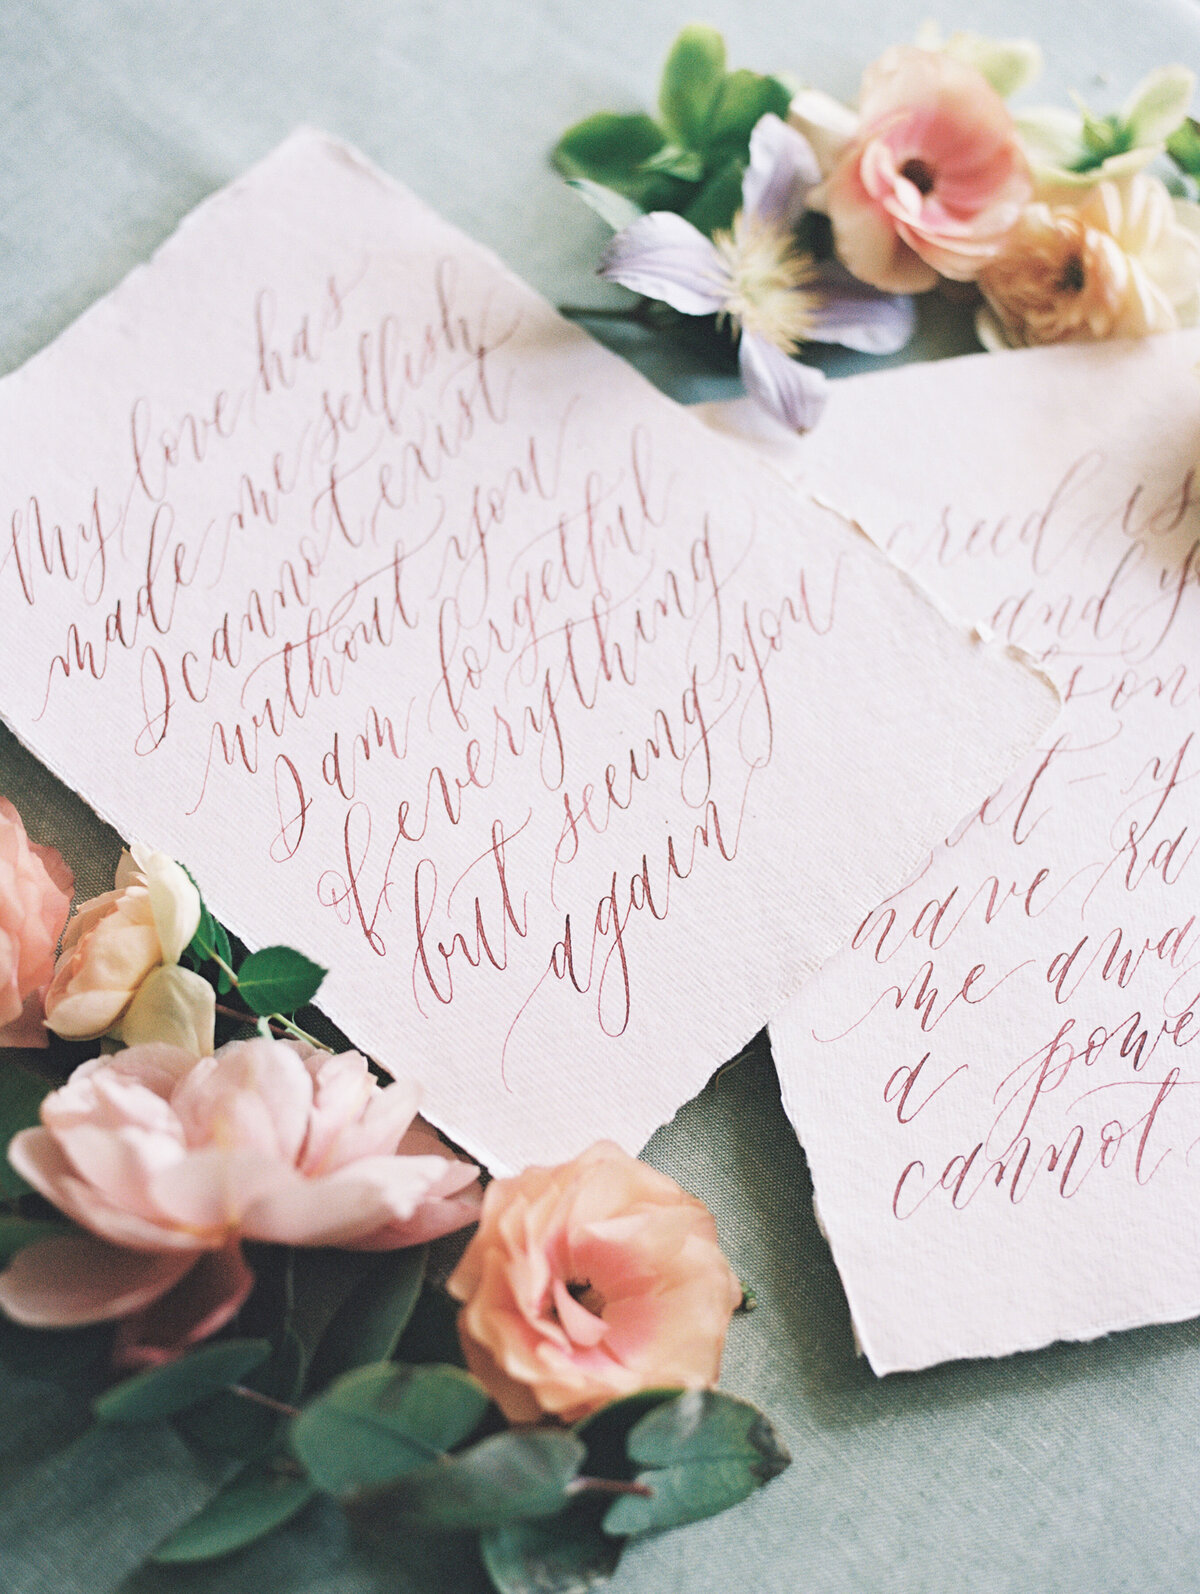 My love has
made me selfish
I cannot exist
without you
I am forgetful
of everything
but seeing you
again
creed is
and y
son
t - y
have ra
me awa
a powe
cannot